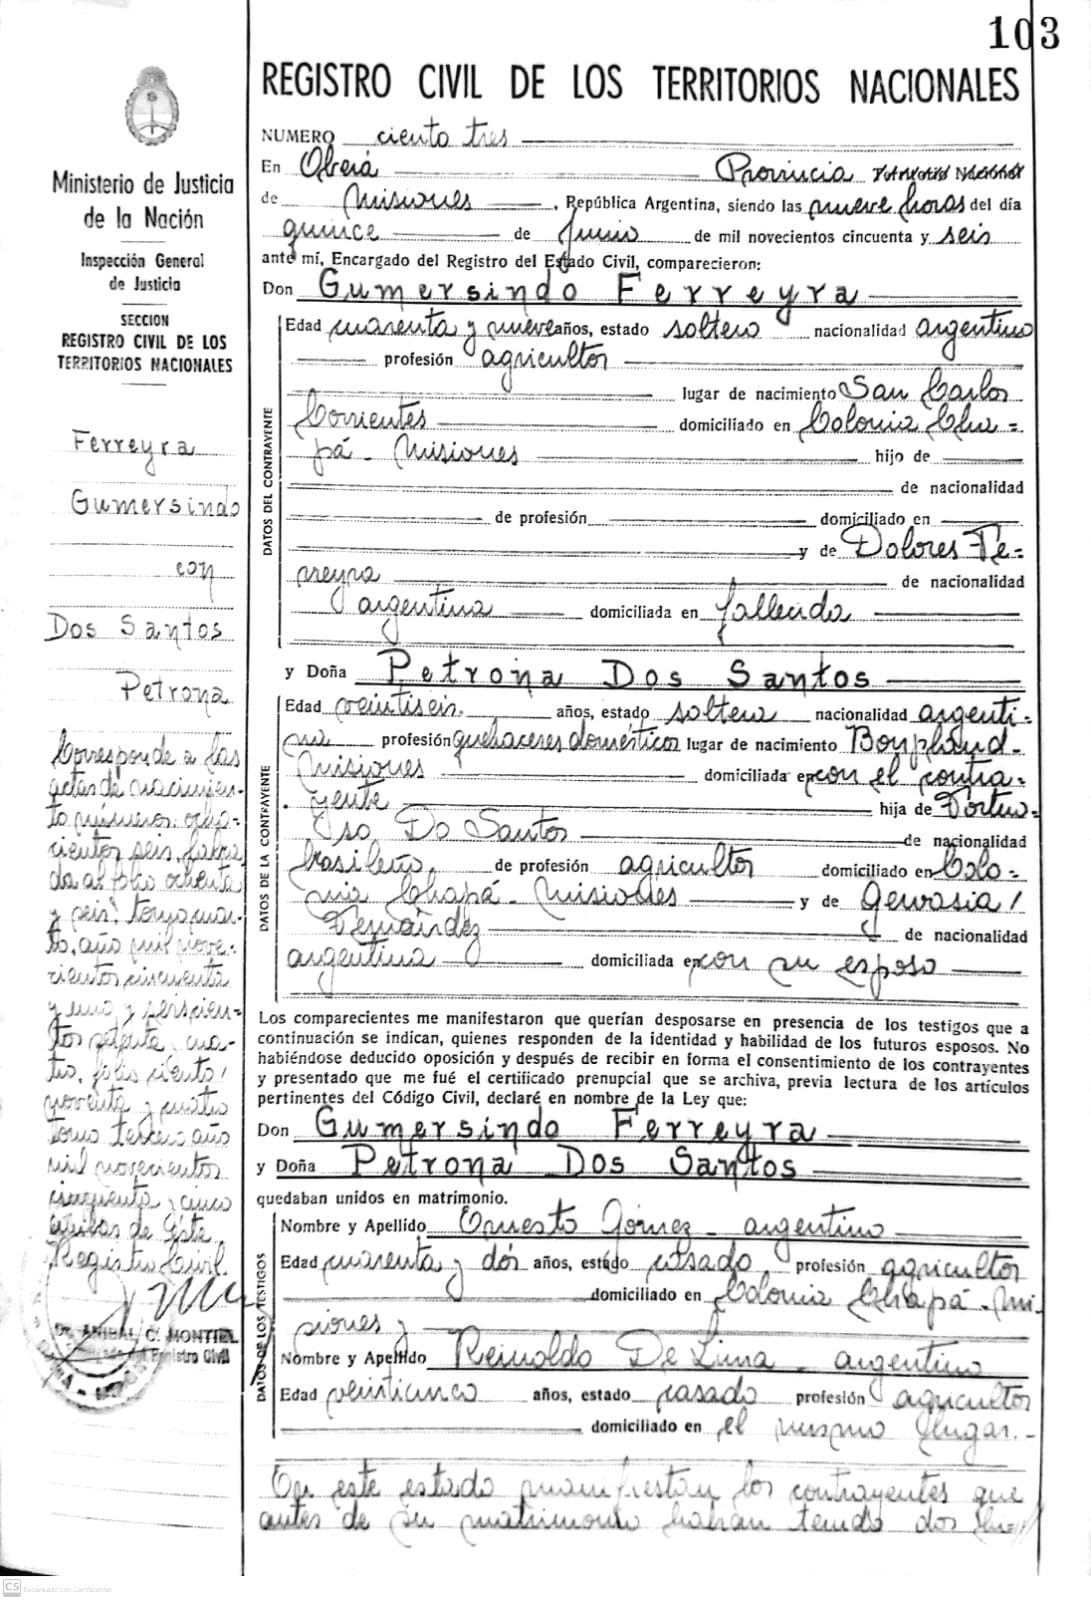 103
REGISTRO CIVIL DE LOS TERRITORIOS NACIONALES
NUMERO ciento tres
En Oberá Provincia
de Misiones, República Argentina, siendo las nueve horas del día
quince de Junio de mil novecientos cincuenta y seis
ante mí, Encargado del Registro del Estado Civil, comparecieron:
Don Gumersindo Ferreyra
DATOS DEL CONTRAYENTE
Edad cuarenta y nueve años, estado soltero nacionalidad argentino
profesión agricultor
lugar de nacimiento San Carlos
Corrientes domiciliado en Colonia Cha=
pá - Misiones hijo de
de nacionalidad
de profesión domiciliado en
y de Dolores Fe-
rreyra de nacionalidad
argentina domiciliada en fallecida
y Doña Petrona Dos Santos
DATOS DE LA CONTRAYENTE
Edad veintiseis. años, estado soltera nacionalidad argenti-
na profesión quehaceres domésticos lugar de nacimiento Bonpland-
Misiones domiciliada en con el contra=
yente hija de Fortu=
oso Do Santos de nacionalidad
brasileño, de profesión agricultor domiciliado en Colo=
nia Chapá - Misiones y de Gervasia
Fernández de nacionalidad
argentina domiciliada en con su esposo
Los comparecientes me manifestaron que querían desposarse en presencia de los testigos que a
continuación se indican, quienes responden de la identidad y habilidad de los futuros esposos. No
habiéndose deducido oposición y después de recibir en forma el consentimiento de los contrayentes
y presentado que me fué el certificado prenupcial que se archiva, previa lectura de los artículos
pertinentes del Código Civil, declaré en nombre de la Ley que:
Don Gumersindo Ferreyra
y Doña Petrona Dos Santos
quedaban unidos en matrimonio.
DATOS DE LOS TESTIGOS
Nombre y Apellido Ernesto Gómez - argentino
Edad cuarenta y dos años, estado casado, profesión agricultor
domiciliado en Colonia Chapá - Mi-
siones y
Nombre y Apellido Reinoldo De Lima - argentino
Edad veinticinco años, estado casado profesión agricultor
domiciliado en el mismo lugar.-
En este estado manifiestan los contrayentes que
antes de su matrimonio habían tenido dos hi=
Ministerio de Justicia
de la Nación
Inspección General
de Justicia
SECCION
REGISTRO CIVIL DE LOS
TERRITORIOS NACIONALES
Ferreyra
Gumersindo
con
Dos Santos
Petrona
Corresponde a las
actas de nacimien-
to números: ocho-
cientos seis, labra
da al folio ochenta
y seis, tomo cuar-
to, año mil nove-
cientos cincuenta
y uno y seiscien-
tos setenta y cua-
tro, folio ciento
noventa y cuatro
tomo tercero año
mil novecientos
cincuenta y cinco
ambas de éste
Registro Civil.
Dr. ANIBAL C. MONTIEL
Registro Civil
CS Escaneado con CamScanner